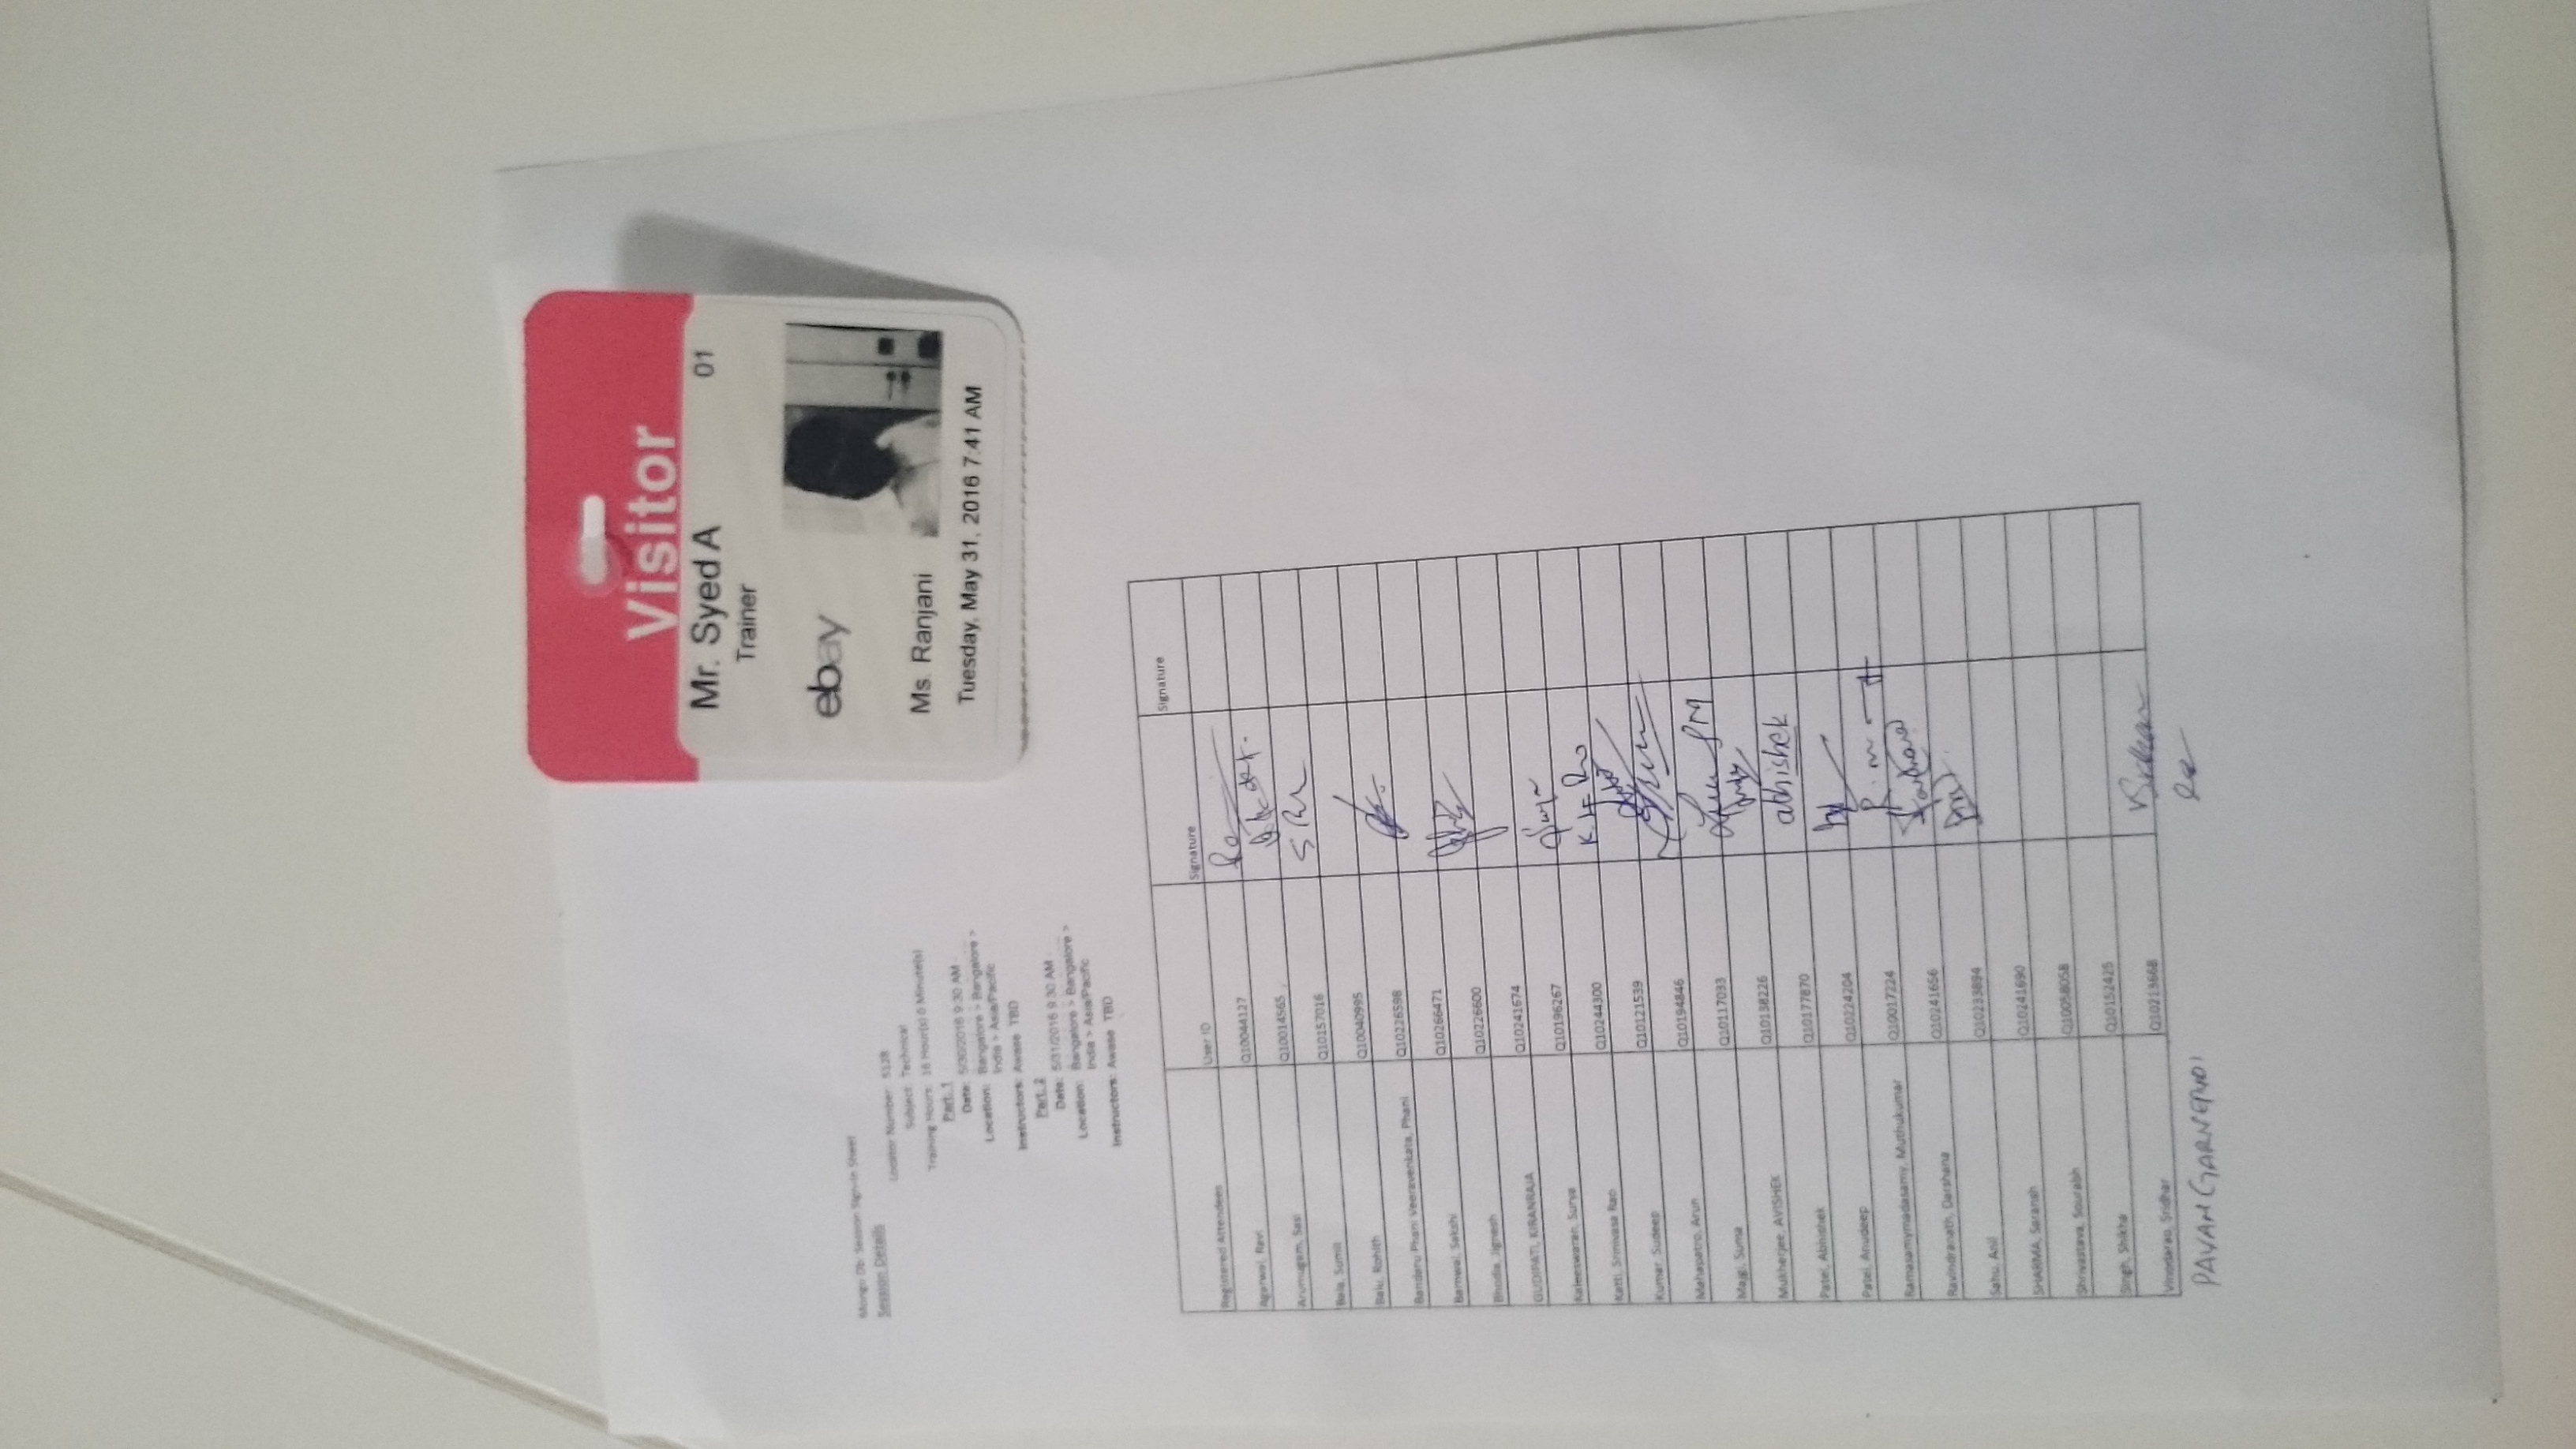 Visitor
Mr. Syed A 01
Trainer
ebay
Ms. Ranjani
Tuesday, May 31, 2016 7:41 AM
Mongo Db: Session Sign-In Sheet
Session Details
Locator Number: 5128
Subject: Technical
Training Hours: 16 Hour(s) 0 Minute(s)
Part. 1
Date: 5/30/2016 9:30 AM -
Location: Bangalore > Bangalore >
India > Asia/Pacific
Instructors: Awase TBD
Part. 2
Date: 5/31/2016 9:30 AM -
Location: Bangalore > Bangalore >
India > Asia/Pacific
Instructors: Awase TBD
Registered Attendees User ID Signature Signature
Agarwal, Ravi Q10044127
Arumugam, Sasi Q10014565
Bala, Sumit Q10157016
Balu, Rohith Q10040995
Bandaru Phani Veeravenkata, Phani Q10226598
Barnwal, Sakshi Q10266471
Bhodia, Jignesh Q10226600
GUDIPATI, KIRANRAJA Q10241674
Kaleeswaran, Surya Q10196267
Katti, Srinivasa Rao Q10244300
Kumar, Sudeep Q10121539
Mahapatro, Arun Q10194846
Majgi, Suma Q10117033
Mukherjee, AVISHEK Q10138226
Patel, Abhishek Q10177870 abhishek
Patel, Anudeep Q10224204
Ramasamymadasamy, Muthukumar Q10017224
Ravindranath, Darshana Q10241656
Sahu, Anil Q10233894
SHARMA, Saransh Q10241690
Shrivastava, Sourabh Q10058058
Singh, Shikha Q10152425
Vinodarao, Sridhar Q10213668
PAVAN GARNEPUDI